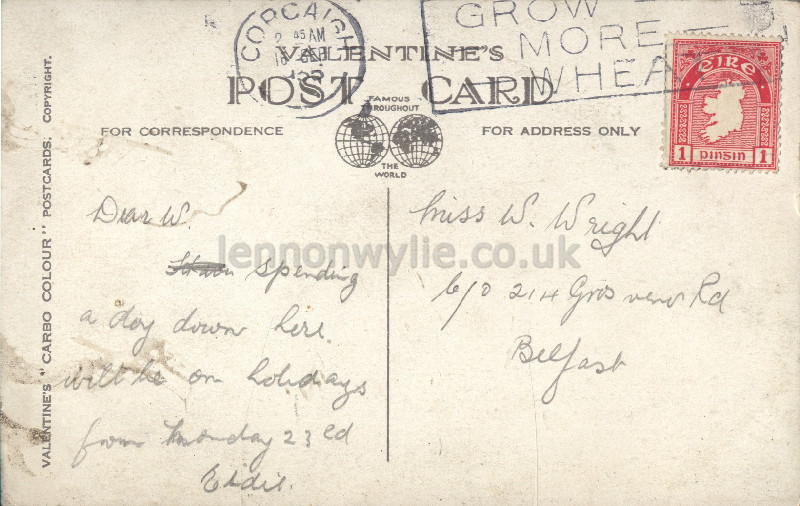 CORCAIGH
GROW
MORE
WHEA
VALENTINE'S
POST CARD
FAMOUS
THROUGHOUT
THE
WORLD
FOR CORRESPONDENCE
FOR ADDRESS ONLY
éire
1 pinsin 1
VALENTINE'S "CARBO COLOUR" POSTCARDS. COPYRIGHT.
Dear W.
spending
a day down here.
will be on holidays
from Monday 23rd
Miss W. Wright
c/o 214 Grosvenor Rd
Belfast
lennonwylie.co.uk